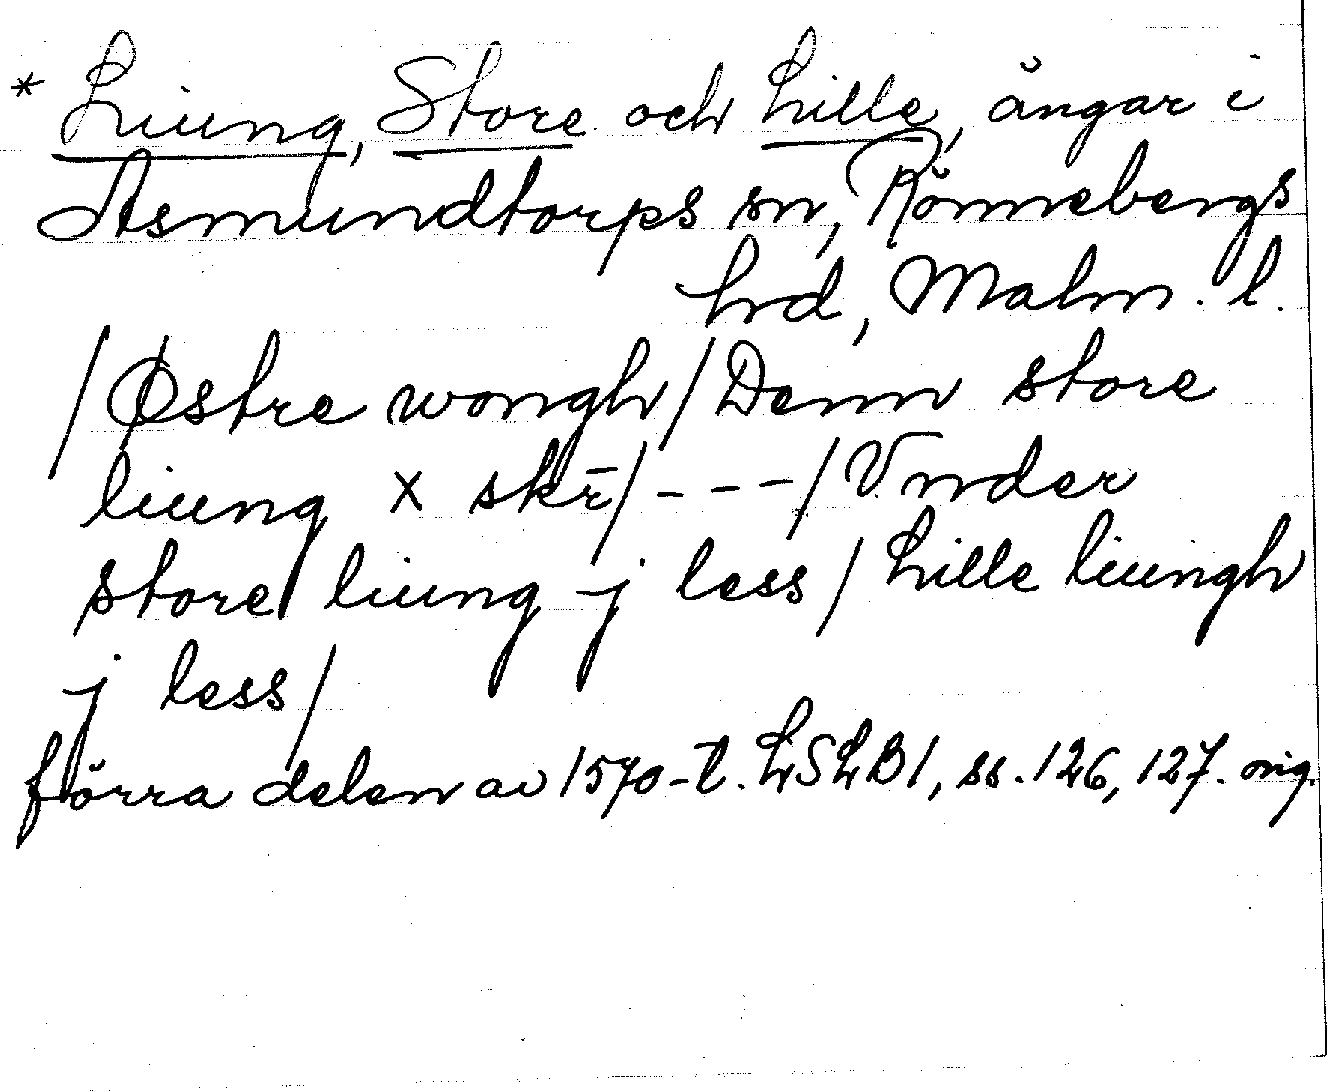 * Liung, Store och Lille, ängar i
Asmundtorps sn, Rönnebergs
hrd, Malm. l.
/Østre wongh/Denn store
liung x skr̄/---/Vnder
store liung j less/Lille liungh
j less/
förra delen av 1570-t. LSLB1, ss. 126, 127. orig.